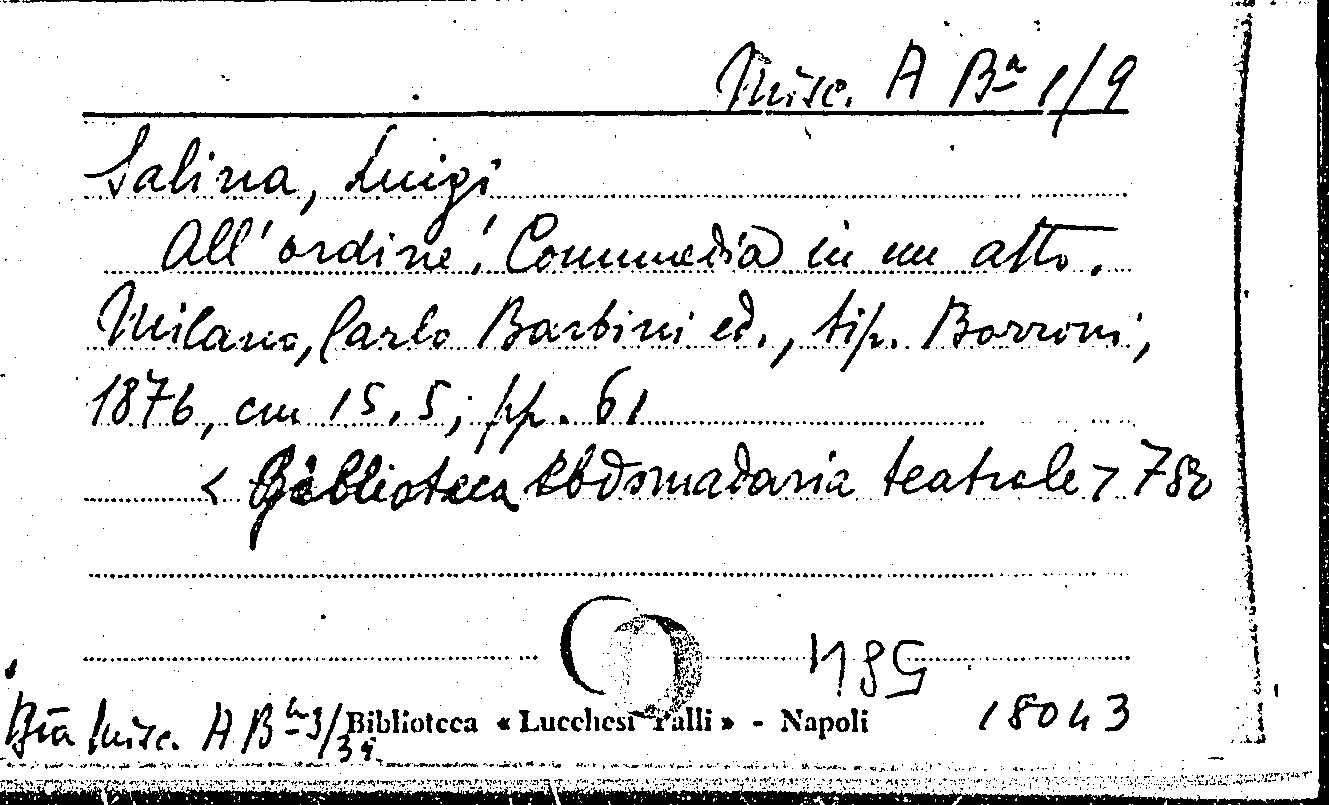 Misc. A Bᵃ 1/9
Salina, Luigi
All'ordine! Commedia in un atto.
Milano, Carlo Barbini ed., tip. Borroni,
1876, cm 15,5; pp. 61
< Biblioteca ebdomadaria teatrale > 780
Misc. A
Biblioteca « Lucchesi Palli » - Napoli
18043